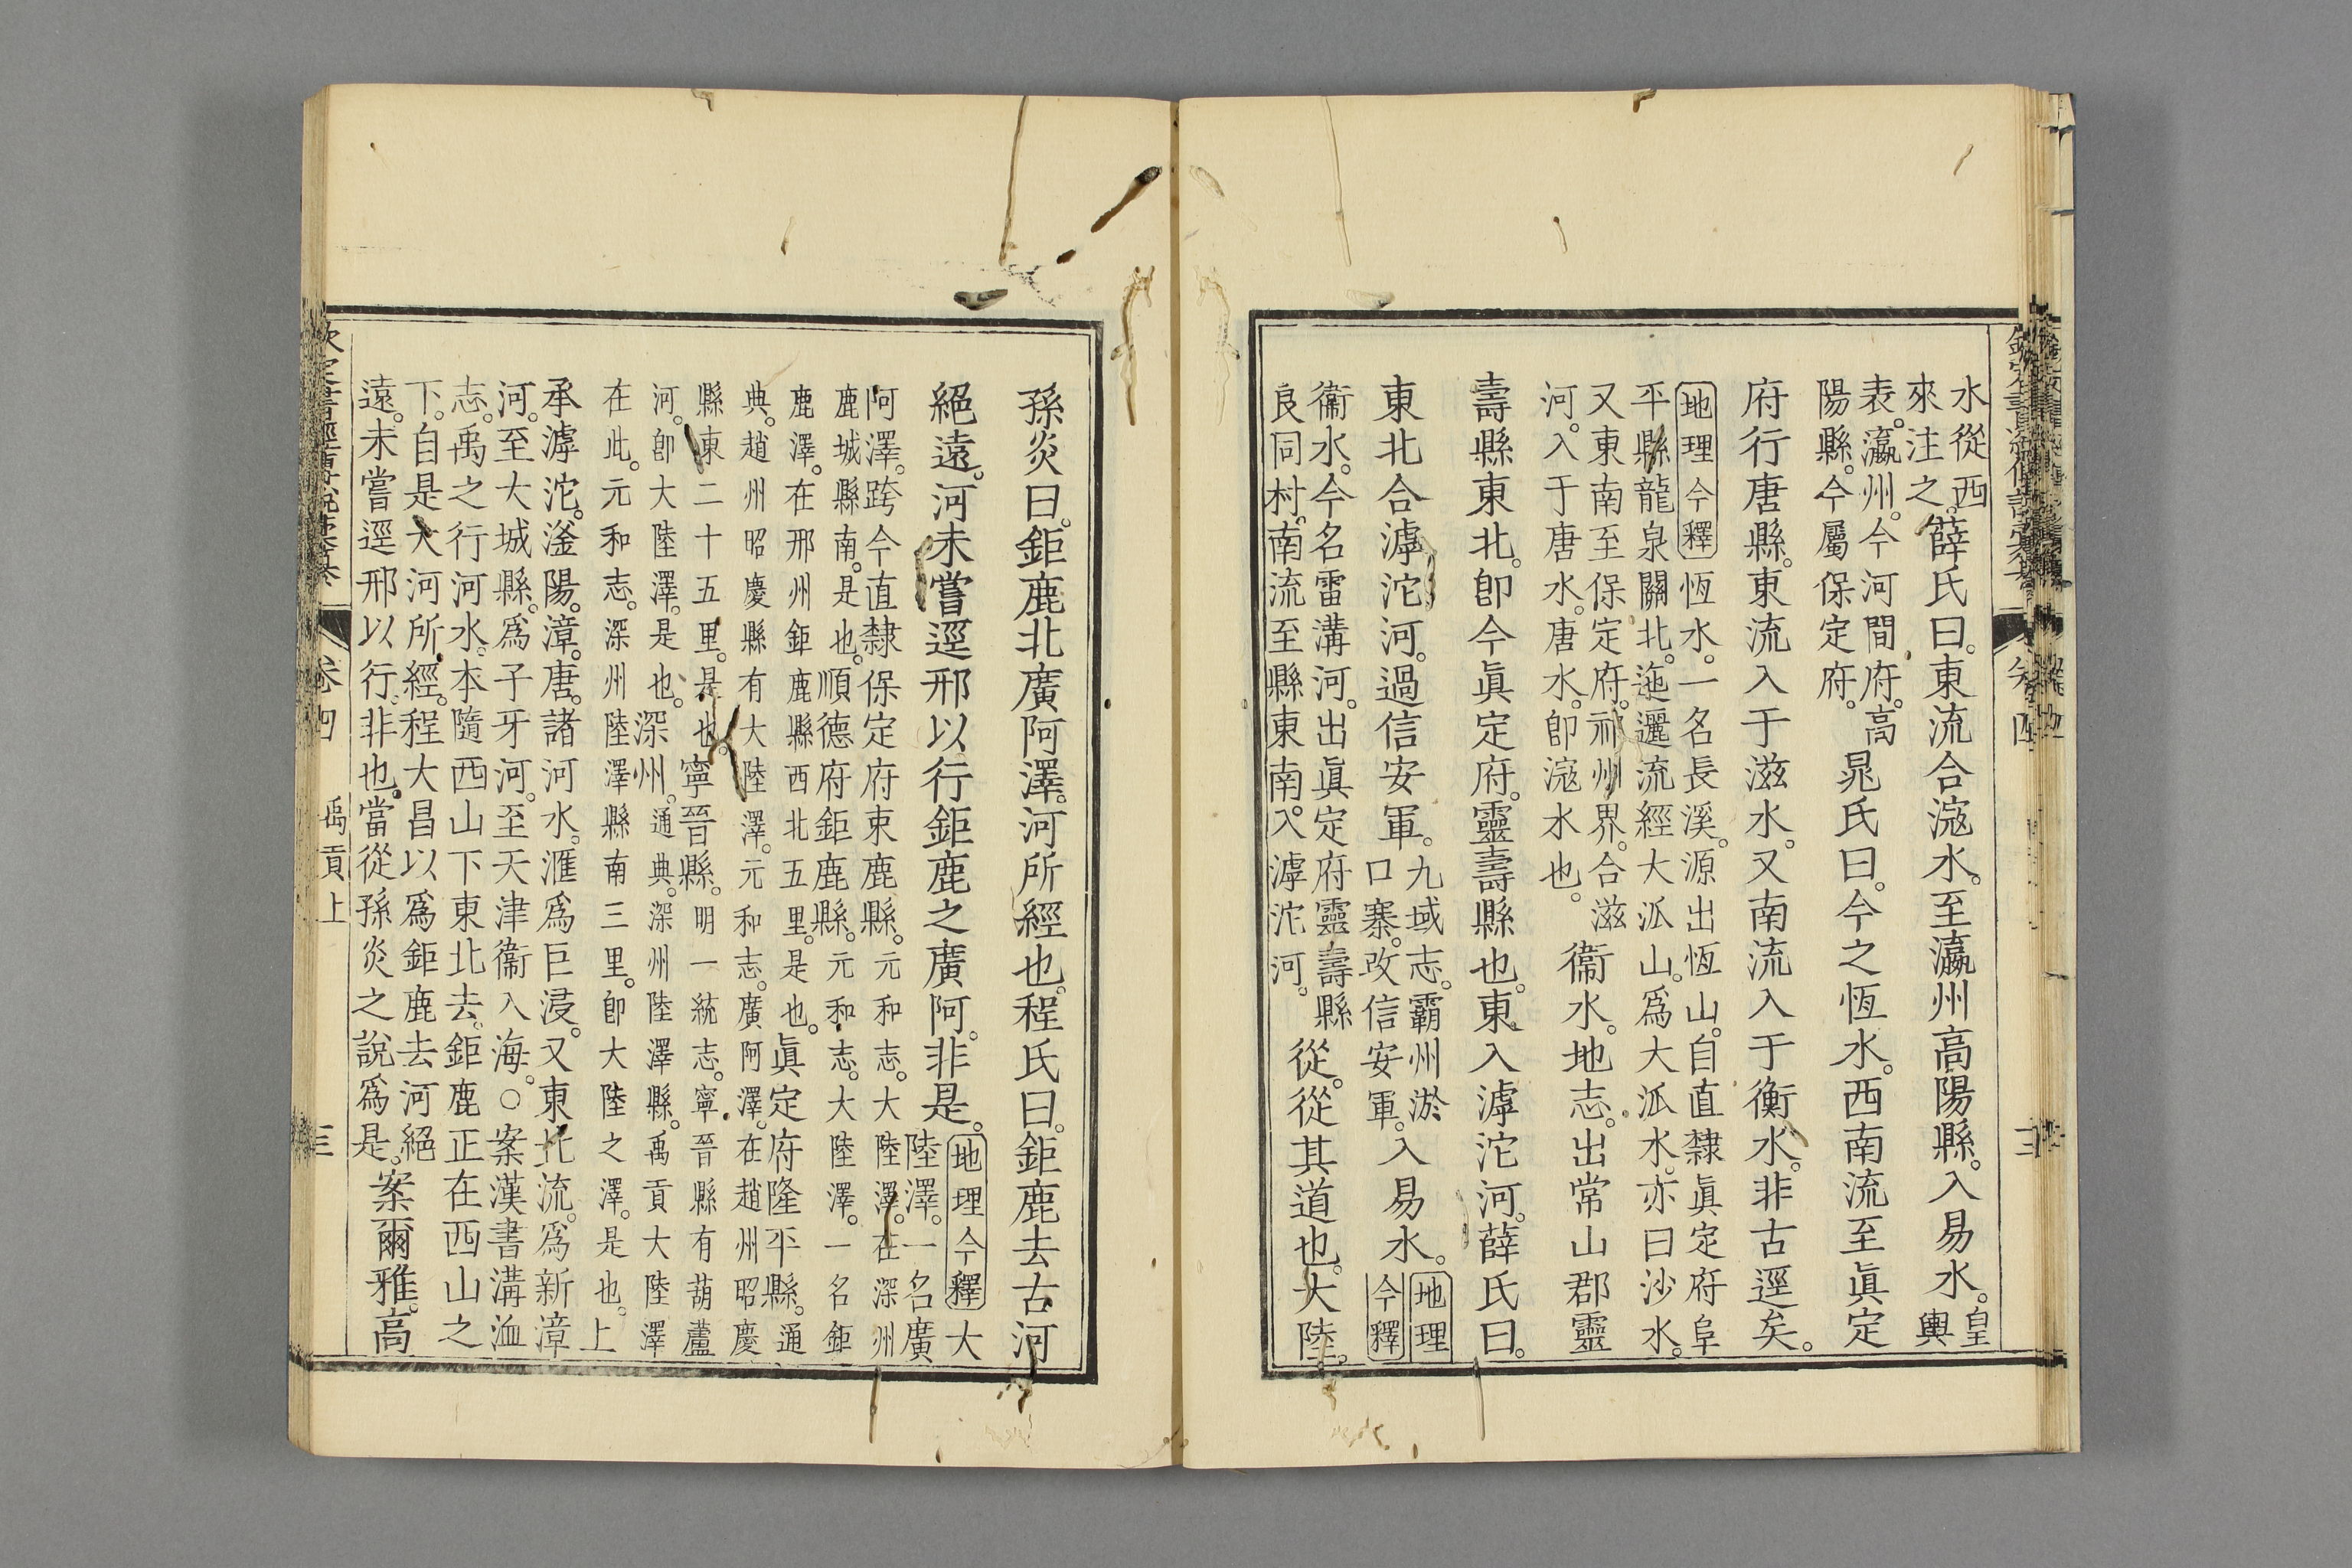 水從西
來注之。薛氏曰。東流合滱水。至瀛州高陽縣。入易水。皇
輿
表。瀛州。今河間府。高
陽縣。今屬保定府。晁氏曰。今之恆水。西南流至眞定
府行唐縣。東流入于滋水。又南流入于衡水。非古逕矣。
地理今釋恆水。一名長溪。源出恆山。自直隸眞定府阜
平縣龍泉關北。迤邐流經大派山。爲大派水。亦曰沙水。
又東南至保定府。祁州界。合滋
河。入于唐水。唐水。卽滱水也。衞水。地志。出常山郡靈
壽縣東北。卽今眞定府。靈壽縣也。東入滹沱河。薛氏曰。
東北合滹沱河。過信安軍。九域志。霸州淤
口寨。改信安軍。入易水。地理
今釋
衞水。今名雷溝河。出眞定府靈壽縣
良同村。南流至縣東南。入滹沱河。從。從其道也。大陸。
孫炎曰。鉅鹿北廣阿澤。河所經也。程氏曰。鉅鹿去古河
絕遠。河未嘗逕邢以行鉅鹿之廣阿。非是。地理今釋大
陸澤。一名廣
阿澤。跨今直隸保定府束鹿縣。元和志。大陸澤。在深州
鹿城縣南。是也。順德府鉅鹿縣。元和志。大陸澤。一名鉅
鹿澤。在邢州鉅鹿縣西北五里。是也。眞定府隆平縣。通
典。趙州昭慶縣有大陸澤。元和志。廣阿澤。在趙州昭慶
縣東二十五里。是也。寧晉縣。明一統志。寧晉縣有葫蘆
河。卽大陸澤。是也。深州。通典。深州陸澤縣。禹貢大陸澤
在此。元和志。深州陸澤縣南三里。卽大陸之澤。是也。上
承滹沱。滏陽。漳。唐。諸河水。滙爲巨浸。又東北流。爲新漳
河。至大城縣。爲子牙河。至天津衞入海。○案漢書溝洫
志。禹之行河水。本隨西山下東北去。鉅鹿正在西山之
下。自是大河所經。程大昌以爲鉅鹿去河絕
遠。未嘗逕邢以行。非也。當從孫炎之說爲是。案爾雅。高
卷四
禹貢上